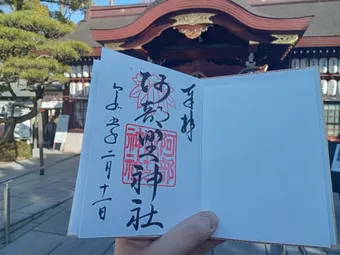 奉拝
阿部野神社
令和六年二月十一日
阿部野神社